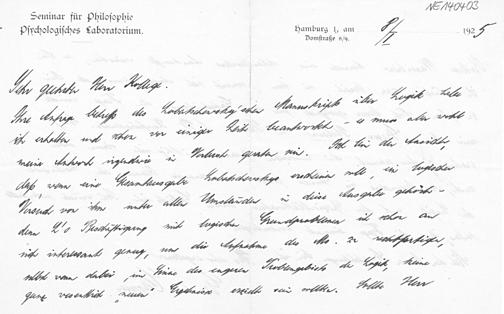 NE140403
Seminar für Philosophie
Psychologisches Laboratorium.
Hamburg 1, am 8/I 1925
Domstraße 8/9.
Sehr geehrter Herr Kollege.
Ihre Anfrage betreffs des Lobatschewsky'schen Manuskripts über Logik habe
ich erhalten und schon vor einiger Zeit beantwortet – es muss aber wohl
meine Antwort irgendwie in Verlust geraten sein. Ich bin der Ansicht,
daß, wenn eine Gesamtausgabe Lobatschewskys erscheinen soll, ein logischer
Versuch von ihm unter allen Umständen in diese Ausgabe gehört.
Beschäftigung mit logischen Grundproblemen ist schon an
sich interessant genug, um die Aufnahme des Ms. zu rechtfertigen,
selbst wenn dabei, im Sinne des engeren der Logik, keine
ganz wesentlich "neuen" Ergebnisse erzielt sein sollten. Sollte Herr